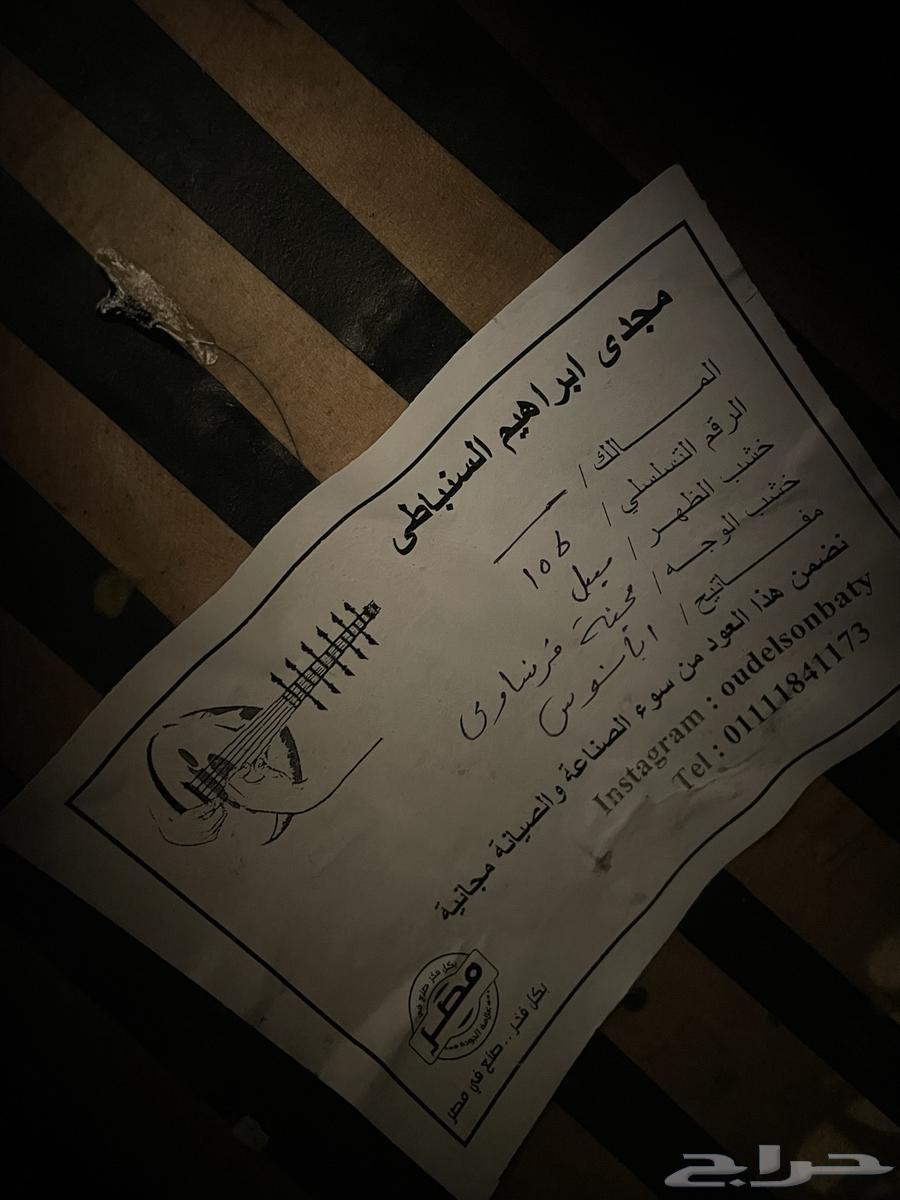 مجدى ابراهيم السنباطى
المـــــالك /
الرقم التسلسلي / ١٥٤
خشب الظهر / سيبل
خشب الوجه / محنة قرنساوى
مفـــاتيح / ابانوس
نضمن هذا العود من سوء الصناعة والصيانة مجانية
Instagram : oudelsonbaty
Tel : 01111841173
بكل فخر صنع في
مصر
علامة الجودة
بكل فخر .. صنع في مصر
حراج